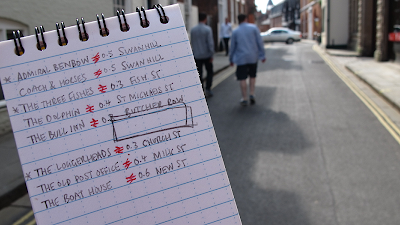 * ADMIRAL BENBOW ≠ 0.5 SWANHILL
COACH & HORSES ≠ 0.5 SWANHILL
* THE THREE FISHES ≠ 0.3 FISH ST
THE DOLPHIN ≠ 0.4 ST MICHAELS ST
THE BULL INN ≠ 0. BUTCHER ROW
* THE LOGGERHEADS ≠ 0.3 CHURCH ST
THE OLD POST OFFICE ≠ 0.4 MILK ST
THE BOAT HOUSE ≠ 0.6 NEW ST